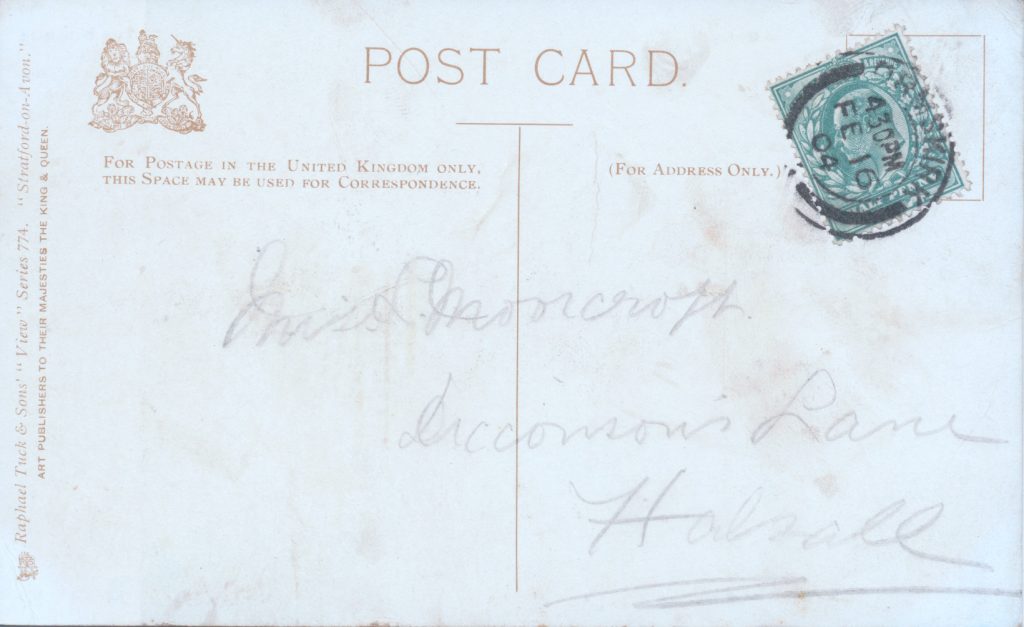 POST CARD.
FOR POSTAGE IN THE UNITED KINGDOM ONLY,
THIS SPACE MAY BE USED FOR CORRESPONDENCE.
(FOR ADDRESS ONLY.)
ORMSKIRK
4 30 PM
FE 16
04
Miss Moorcroft.
Dicconson's Lane
Halsall
Raphael Tuck & Sons' "View" Series 774. "Stratford-on-Avon."
ART PUBLISHERS TO THEIR MAJESTIES THE KING & QUEEN.